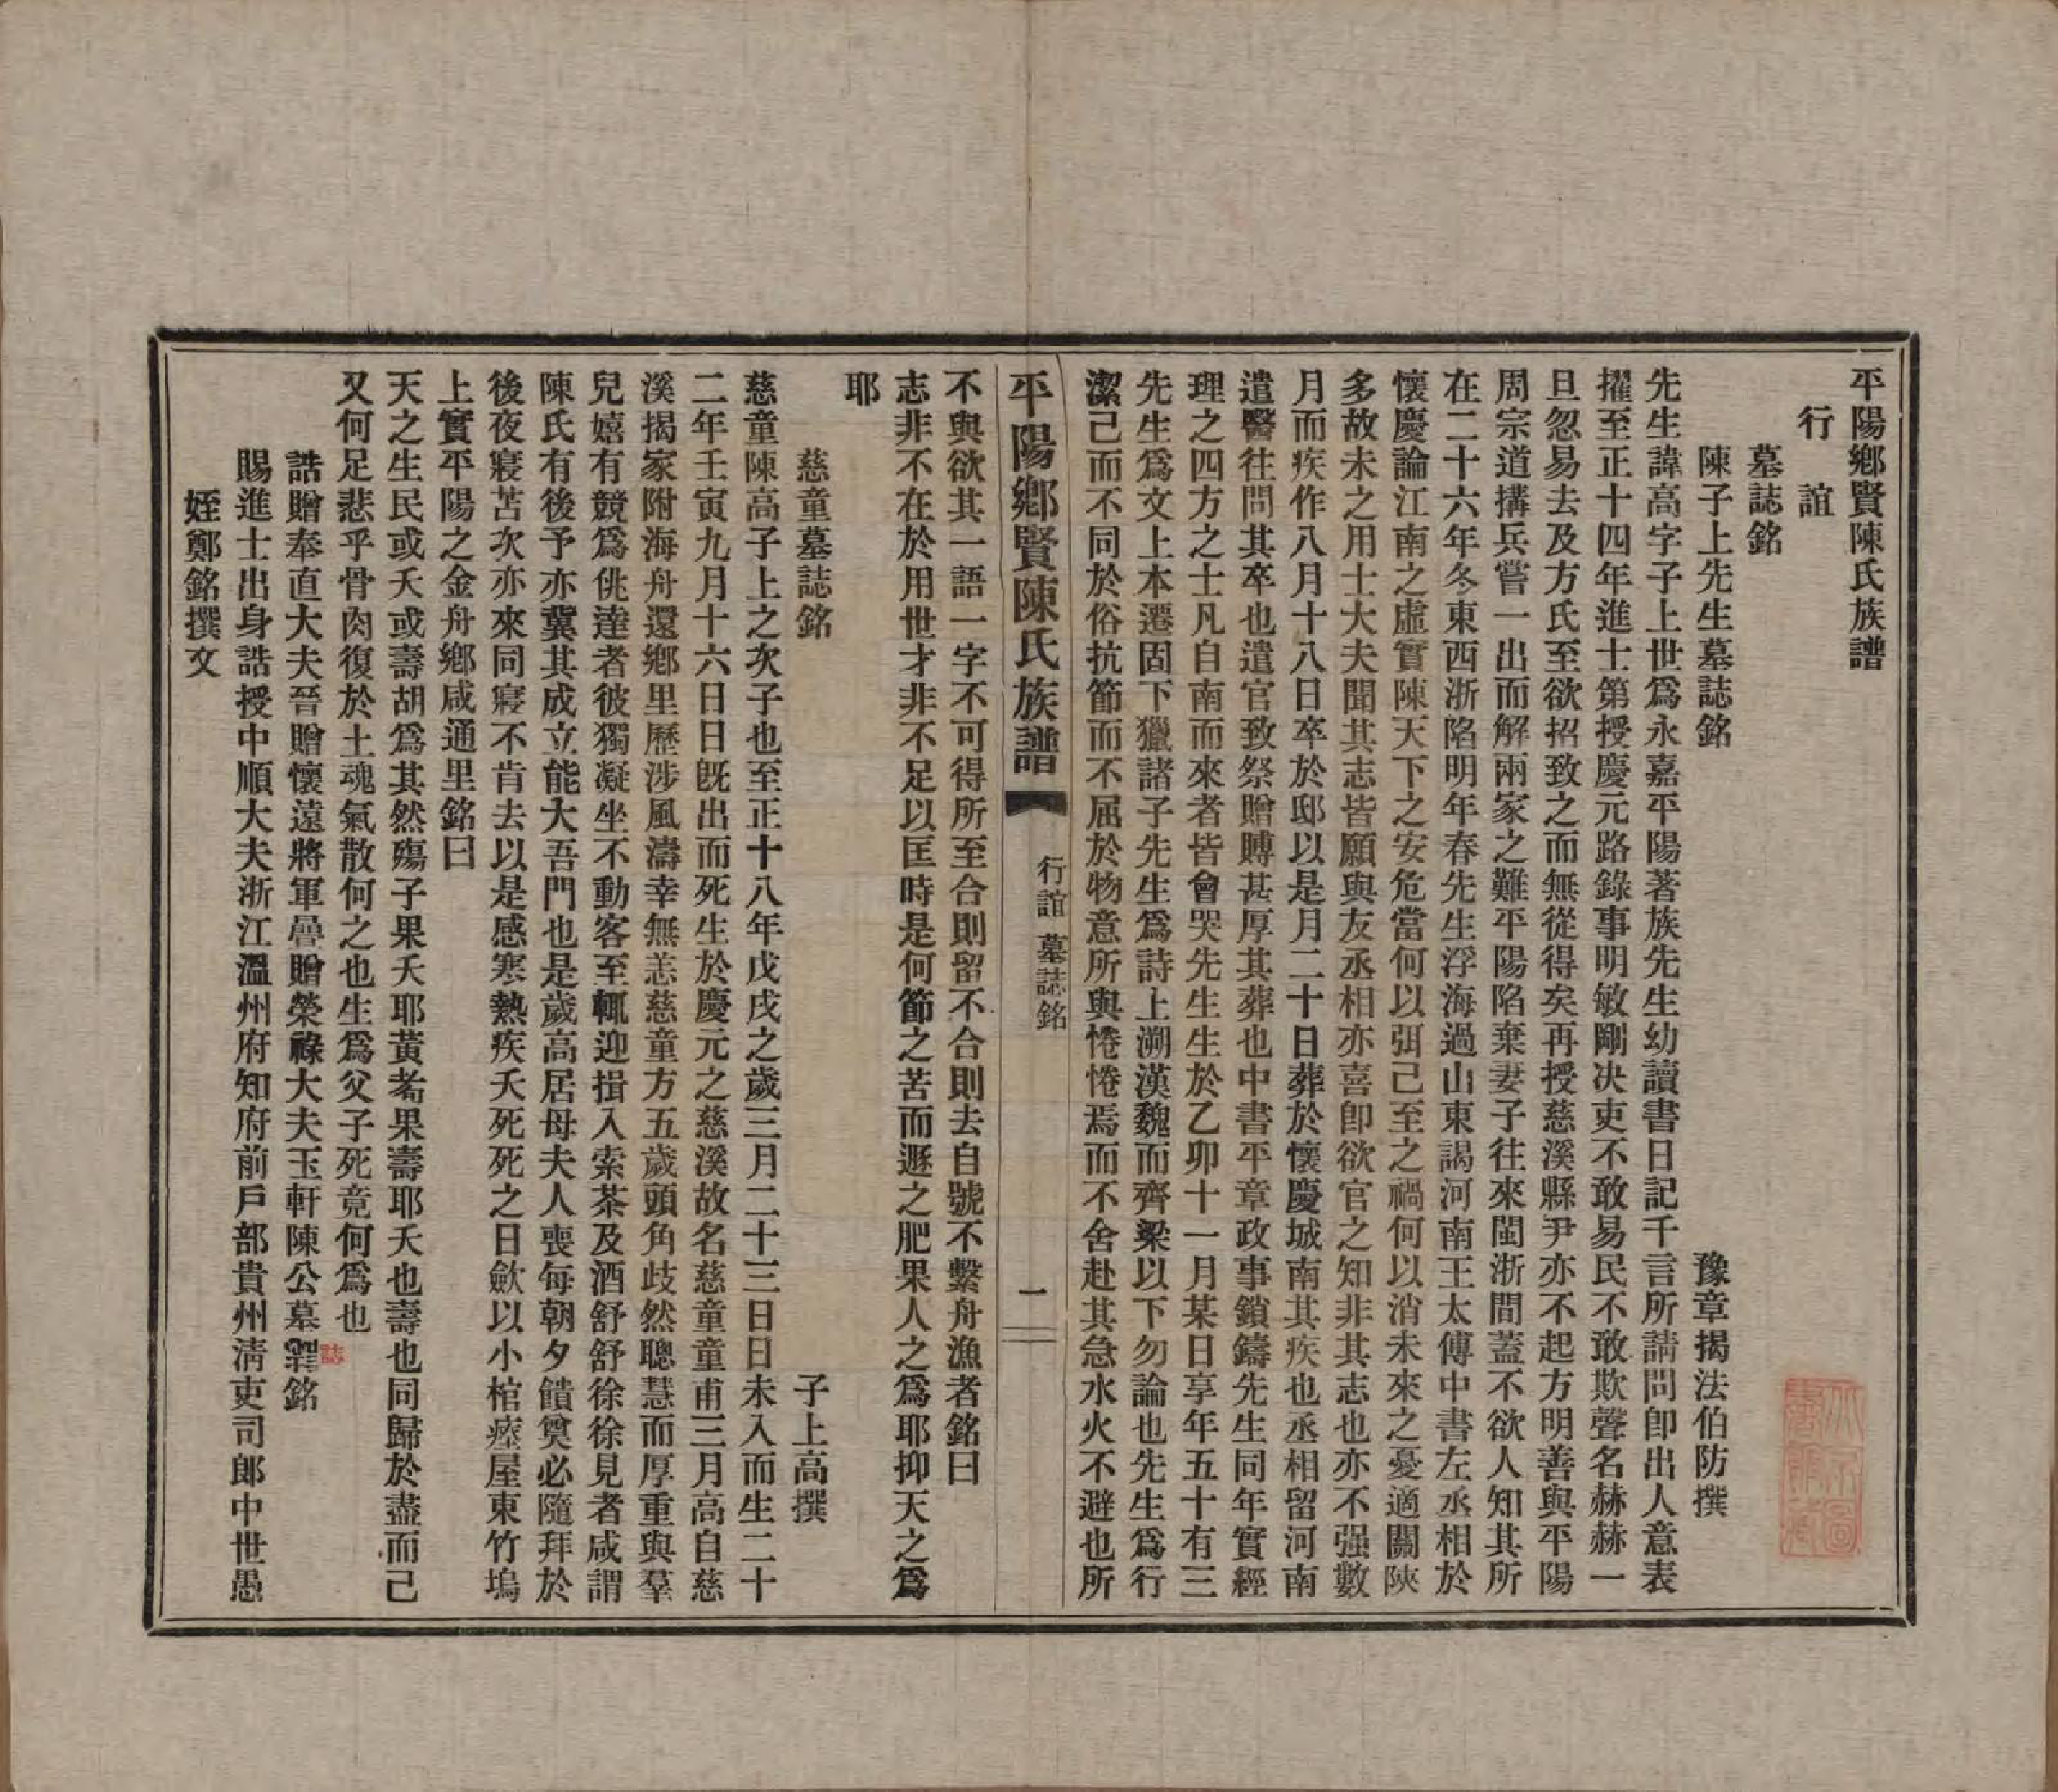 平陽鄉賢陳氏族譜
行誼
墓誌銘
陳子上先生墓誌銘　豫章揭法伯防撰
先生諱高字子上世爲永嘉平陽著族先生幼讀書日記千言所請問卽出人意表
擢至正十四年進士第授慶元路錄事明敏剛决吏不敢易民不敢欺聲名赫赫一
旦忽易去及方氏至欲招致之而無從得矣再授慈溪縣尹亦不起方明善與平陽
周宗道搆兵嘗一出而解兩家之難平陽陷棄妻子往來閩浙間蓋不欲人知其所
在二十六年冬東西浙陷明年春先生浮海過山東謁河南王太傅中書左丞相於
懷慶論江南之虛實陳天下之安危當何以弭己至之禍何以消未來之憂適關陝
多故未之用士大夫聞其志皆願與友丞相亦喜卽欲官之知非其志也亦不强數
月而疾作八月十八日卒於邸以是月二十日葬於懷慶城南其疾也丞相留河南
遣醫往問其卒也遣官致祭贈賻甚厚其葬也中書平章政事鎖鑄先生同年實經
理之四方之士凡自南而來者皆會哭先生生於乙卯十一月某日享年五十有三
先生爲文上本遷固下獵諸子先生爲詩上溯漢魏而齊梁以下勿論也先生爲行
潔己而不同於俗抗節而不屈於物意所與惓惓焉而不舍赴其急水火不避也所
平陽鄉賢陳氏族譜　行誼　墓誌銘　一
不與欲其一語一字不可得所至合則留不合則去自號不繫舟漁者銘曰
志非不在於用世才非不足以匡時是何節之苦而遯之肥果人之爲耶抑天之爲
耶
慈童墓誌銘　子上高撰
慈童陳高子上之次子也至正十八年戊戌之歲三月二十三日日未入而生二十
二年壬寅九月十六日日旣出而死生於慶元之慈溪故名慈童童甫三月高自慈
溪揭家附海舟還鄉里歷涉風濤幸無恙慈童方五歲頭角歧然聰慧而厚重與羣
兒嬉有競爲佻達者彼獨凝坐不動客至輒迎揖入索茶及酒舒舒徐徐見者咸謂
陳氏有後予亦冀其成立能大吾門也是歲高居母夫人喪每朝夕饋奠必隨拜於
後夜寢苦次亦來同寢不肯去以是感寒熱疾夭死死之日歛以小棺瘞屋東竹塢
上實平陽之金舟鄉咸通里銘曰
天之生民或夭或壽胡爲其然殤子果夭耶黃耇果壽耶夭也壽也同歸於盡而已
又何足悲乎骨肉復於土魂氣散何之也生爲父子死竟何爲也
誥贈奉直大夫晉贈懷遠將軍曡贈榮祿大夫玉軒陳公墓誌銘
賜進士出身誥授中順大夫浙江溫州府知府前戶部貴州淸吏司郎中世愚
姪鄭銘撰文